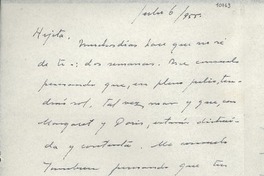 Julio 6/955.
10063
Hijita. Muchos días hace que no sé
de ti: dos semanas. Me consuelo
pensando que, en pleno julio, ten-
drás sol. Tal vez, mar, y que, con
Margaret y Doris, estarás distraí-
da y contenta. Me consuelo
tambien pensando que tus